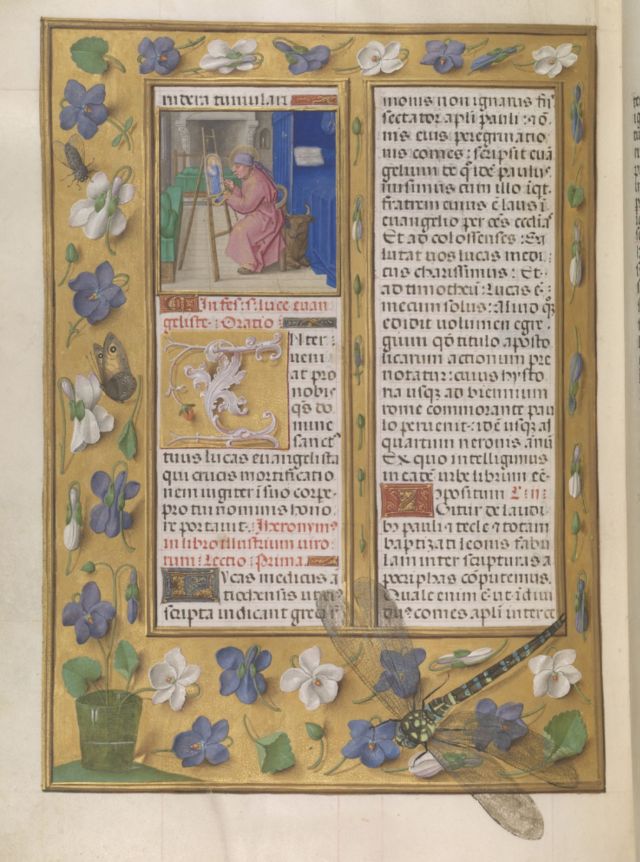 ru dera tumulari
In fes. s. luce evan
geliste. Oratio
Inter
veni
at pro
nobis
qs do
mine
sanct
tuus lucas evangelista
qui crucis mortificatio
nem iugiter i suo corpo
pro tui nominis hono
re portavit. Hieronymus
in libro illustrium viro
rum. Lectio Prima.
Lucas medicus a
scripta indicant greci s
monis non ignarus fu
sectator apli pauli: 
eius peregrinatio
nis comes: scripsit evā
gelium de quo idem paulus
misimus cum illo inqt
fratrem cuius e laus i
evangelio per oēs ecclas
Et ad colossenses: Sa
lutat vos lucas medi
cus charissimus: Et
ad timotheū: Lucas ē
mecum solus: aliud qz
edidit volumen egre
gium qō titulo aposto
licarum actionum pre
notatur: cuius hysto
ria usqz ad biennium
rome commorantis pau
lo pervenit: idē usqz ad
quartum neronis annū
Ex quo intelligimus
in eadē urbe librum eē
compositum
Igitur
pauli z tecle z totam
baptizati leonis fabu
lam inter scripturas a
pocriphas coputemus.
Quale enim ē ut idivi
comes apli inter ce